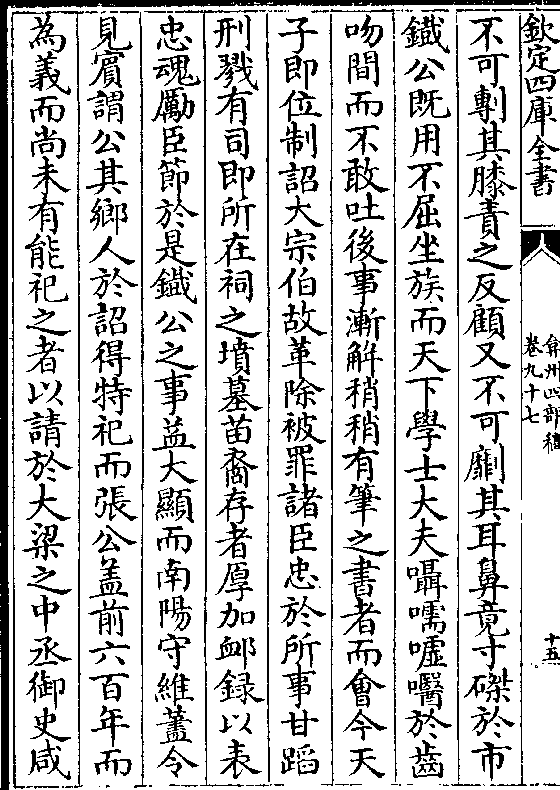 欽定四庫全書
弇州四部稿
卷九十七
十五
不可剸其膝責之反顧又不可劘其耳鼻竟寸磔於市
鐵公既用不屈坐族而天下學士大夫囁嚅嘘㗨於齒
吻間而不敢吐後事漸解稍稍有筆之書者而㑹今天
子即位制詔大宗伯故革除被罪諸臣忠於所事甘蹈
刑戮有司即所在祠之墳墓苗裔存者厚加䘏録以表
忠魂勵臣節於是鐵公之事益大顯而南陽守維藎令
見賔謂公其鄉人於詔得特祀而張公盖前六百年而
為義而尚未有能祀之者以請於大梁之中丞御史咸